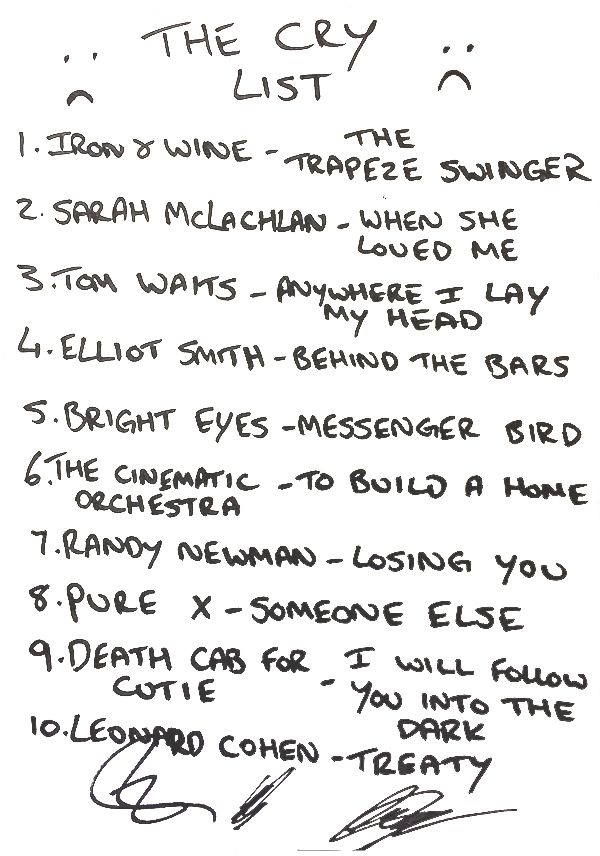 THE CRY
LIST
1. IRON & WINE - THE
TRAPEZE SWINGER
2. SARAH McLACHLAN - WHEN SHE
LOVED ME
3. TOM WAITS - ANYWHERE I LAY
MY HEAD
4. ELLIOT SMITH - BEHIND THE BARS
5. BRIGHT EYES - MESSENGER BIRD
6. THE CINEMATIC - TO BUILD A HOME
ORCHESTRA
7. RANDY NEWMAN - LOSING YOU
8. PURE X - SOMEONE ELSE
9. DEATH CAB FOR - I WILL FOLLOW
CUTIE YOU INTO THE
DARK
10. LEONARD COHEN - TREATY